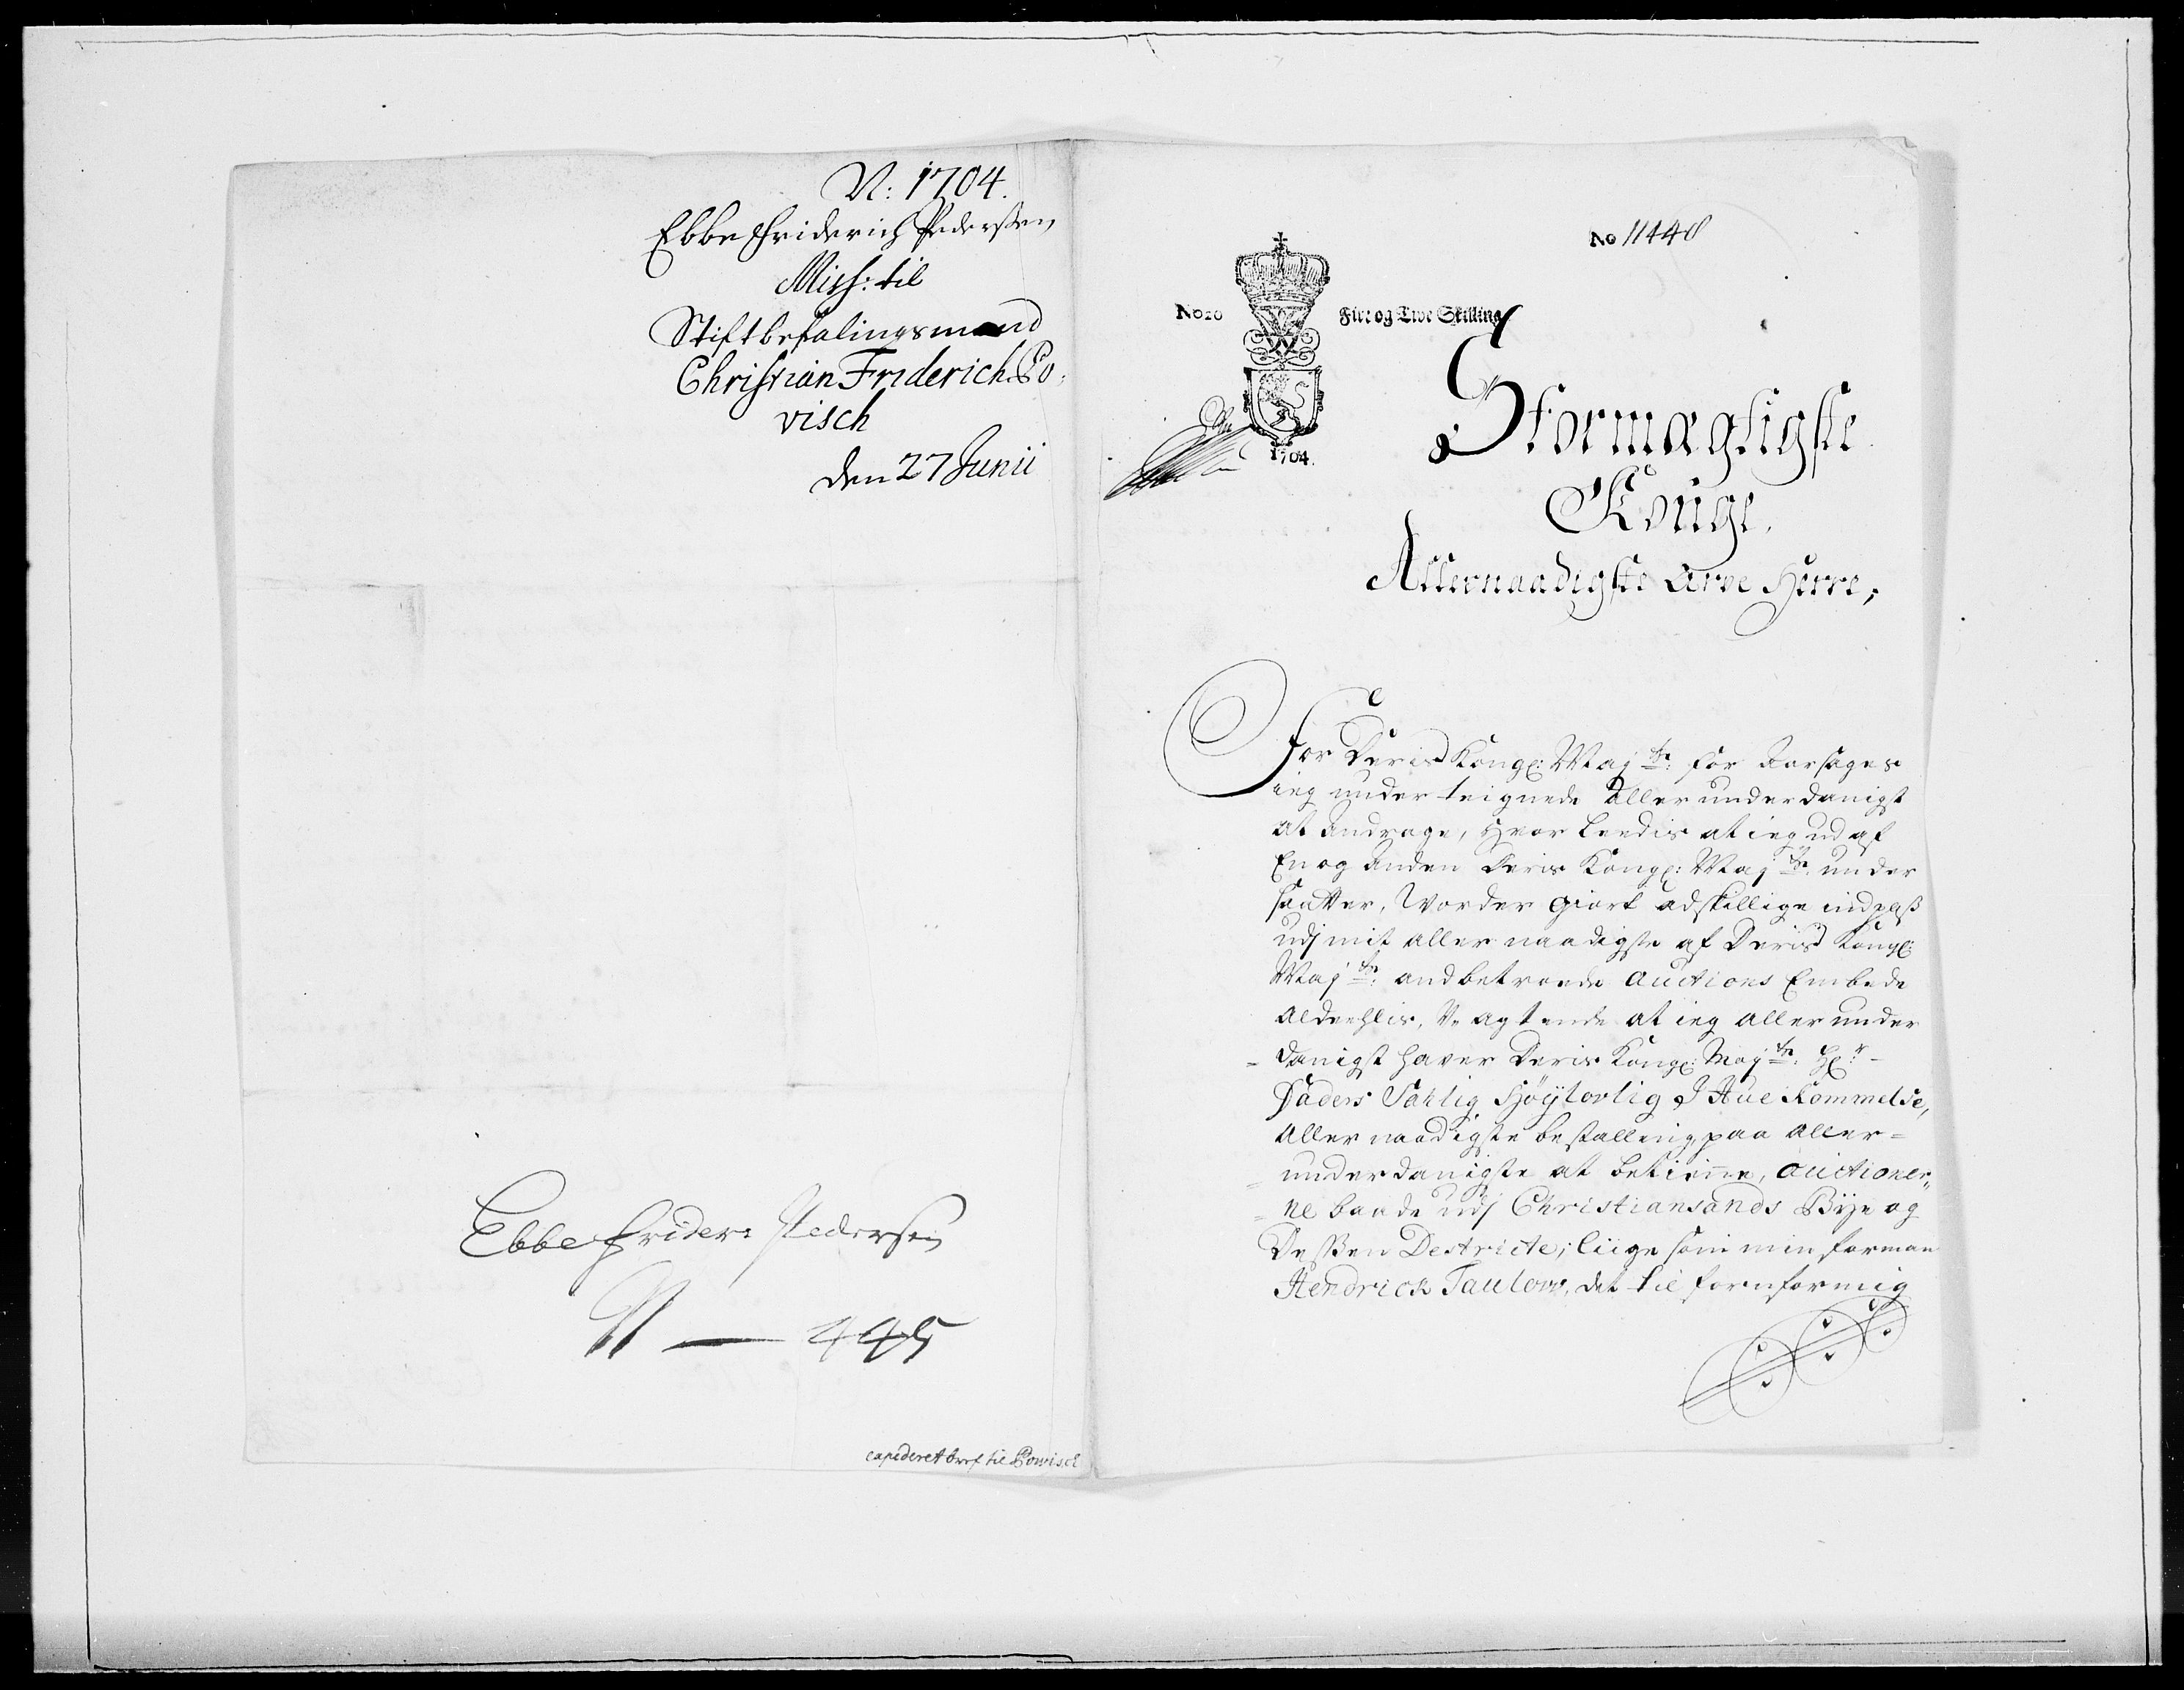 N: 1704.
Ebbe Friderich Pederssen
Miss: til
Stiftbefalingsmand
Christian Friderich Po-
visch
den 27 Junii
Ebbe Frider: Pedersen
N — 445
expederet bref til Powisch
No 11448
No 20
Fire og Tive Skilling
1704.
Stormægtigste
Konge,
Allernaadigste Arve Herre,
For Deris Kongl: Maj tt: for aarsages
ieg under teignede aller underdanigst
at andrage, hvor leedis at ieg ud af
En og anden Deris Kongl: Maj tt: under
saatter, Worder giort adskillige indpas
udj mit aller naadigste af Deris Kongl:
Maj tt: andbetroede Auctions Embede
aldeehlis, U-agtende at ieg aller under
- danigst haver Deris Kongl: Maj tt: Hr:
Faders Sahlig Høyloflig I Hue Kommelse,
Aller naadigste bestalling, paa aller=
= underdanigste at betienne, Auctioner„
= ne baade udj Christiansands Bye og
Dessen Destricte; liige som min forman
Hendrich Taulow, det til forn for mig